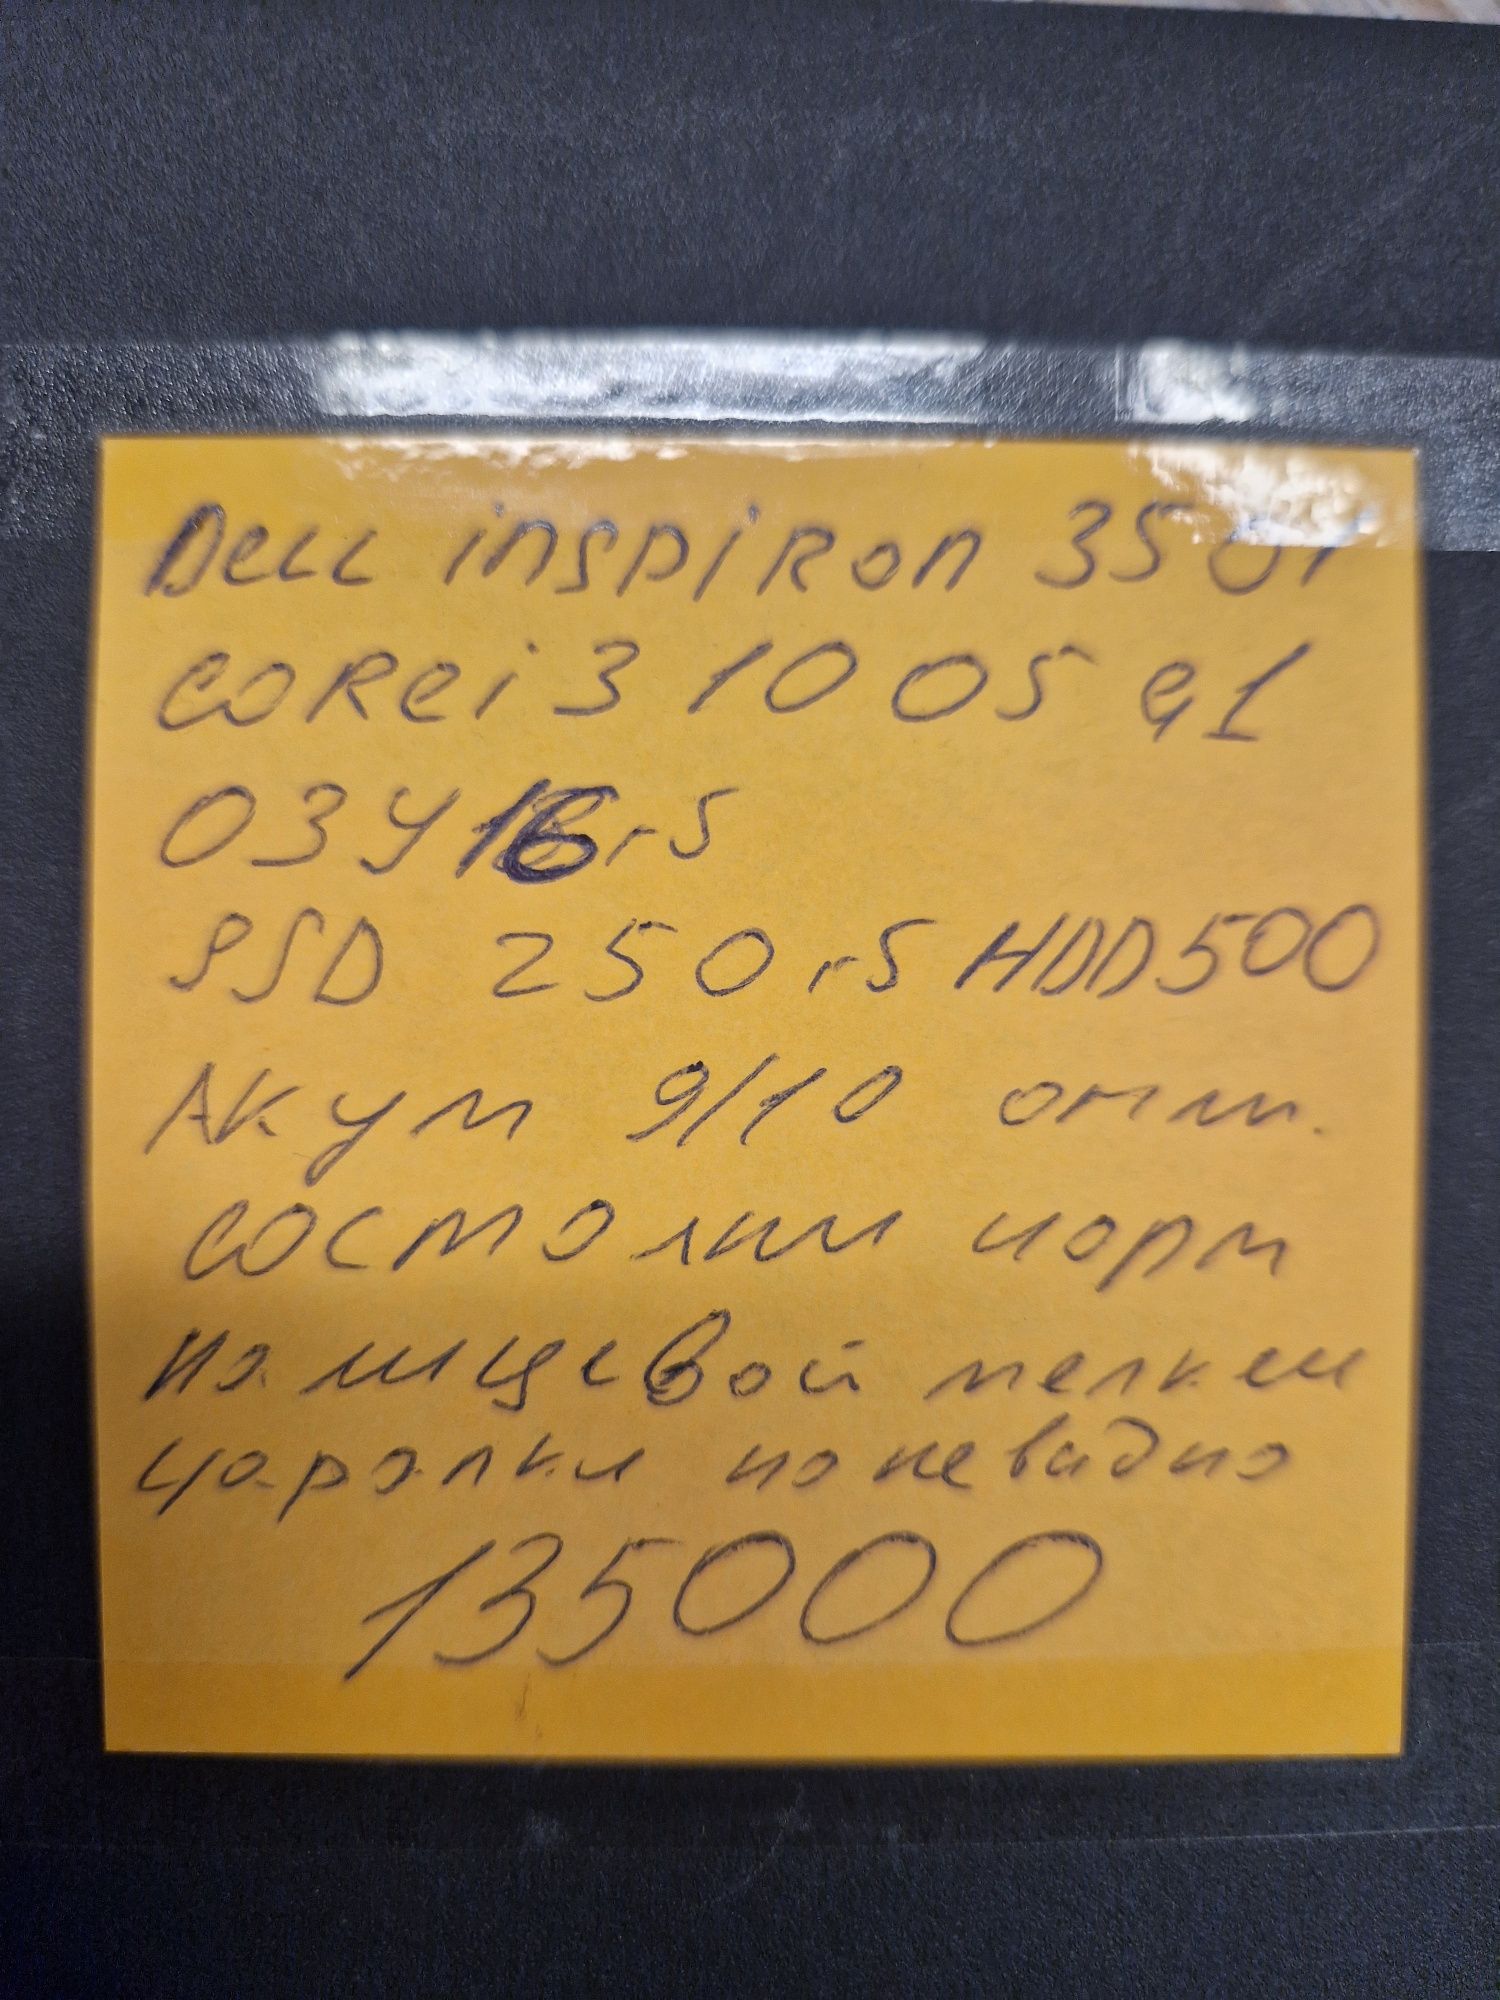 Dell inspiron 3501
corei3 1005 G1
ОЗУ 16гб
SSD 250гб HDD500
Акум 9/10 отл.
состоянии норм
на лицевой мелкеи
царапки но не вадно
135000